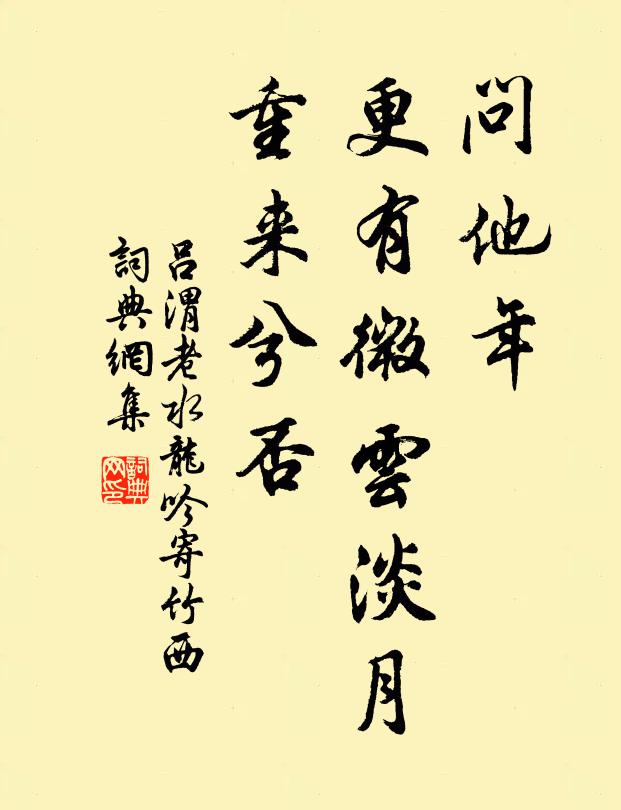 問他年
更有微雲淡月
重来兮否
吕渭老水龍吟寄竹西
詞典網集
詞典
网印